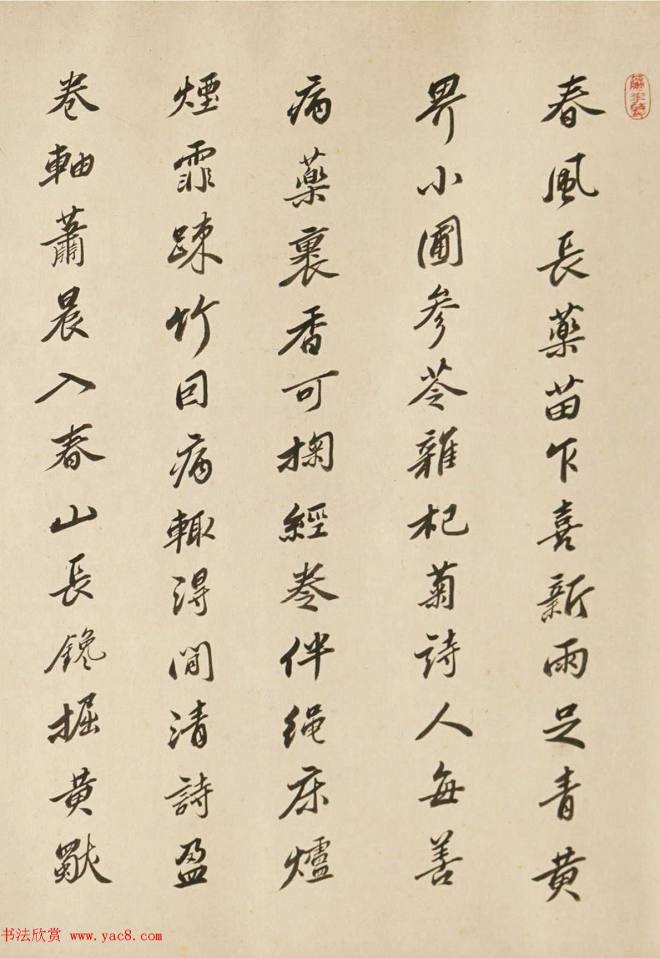 春風長藥苗乍喜新雨足青黃
畀小圃參苓雜杞菊詩人每善
病藥裹香可掬經卷伴绳床爐
煙霏疎竹因病輒得閒清詩盈
卷軸蕭晨入春山長鑱掘黃獨
书法欣赏 www.yac8.com